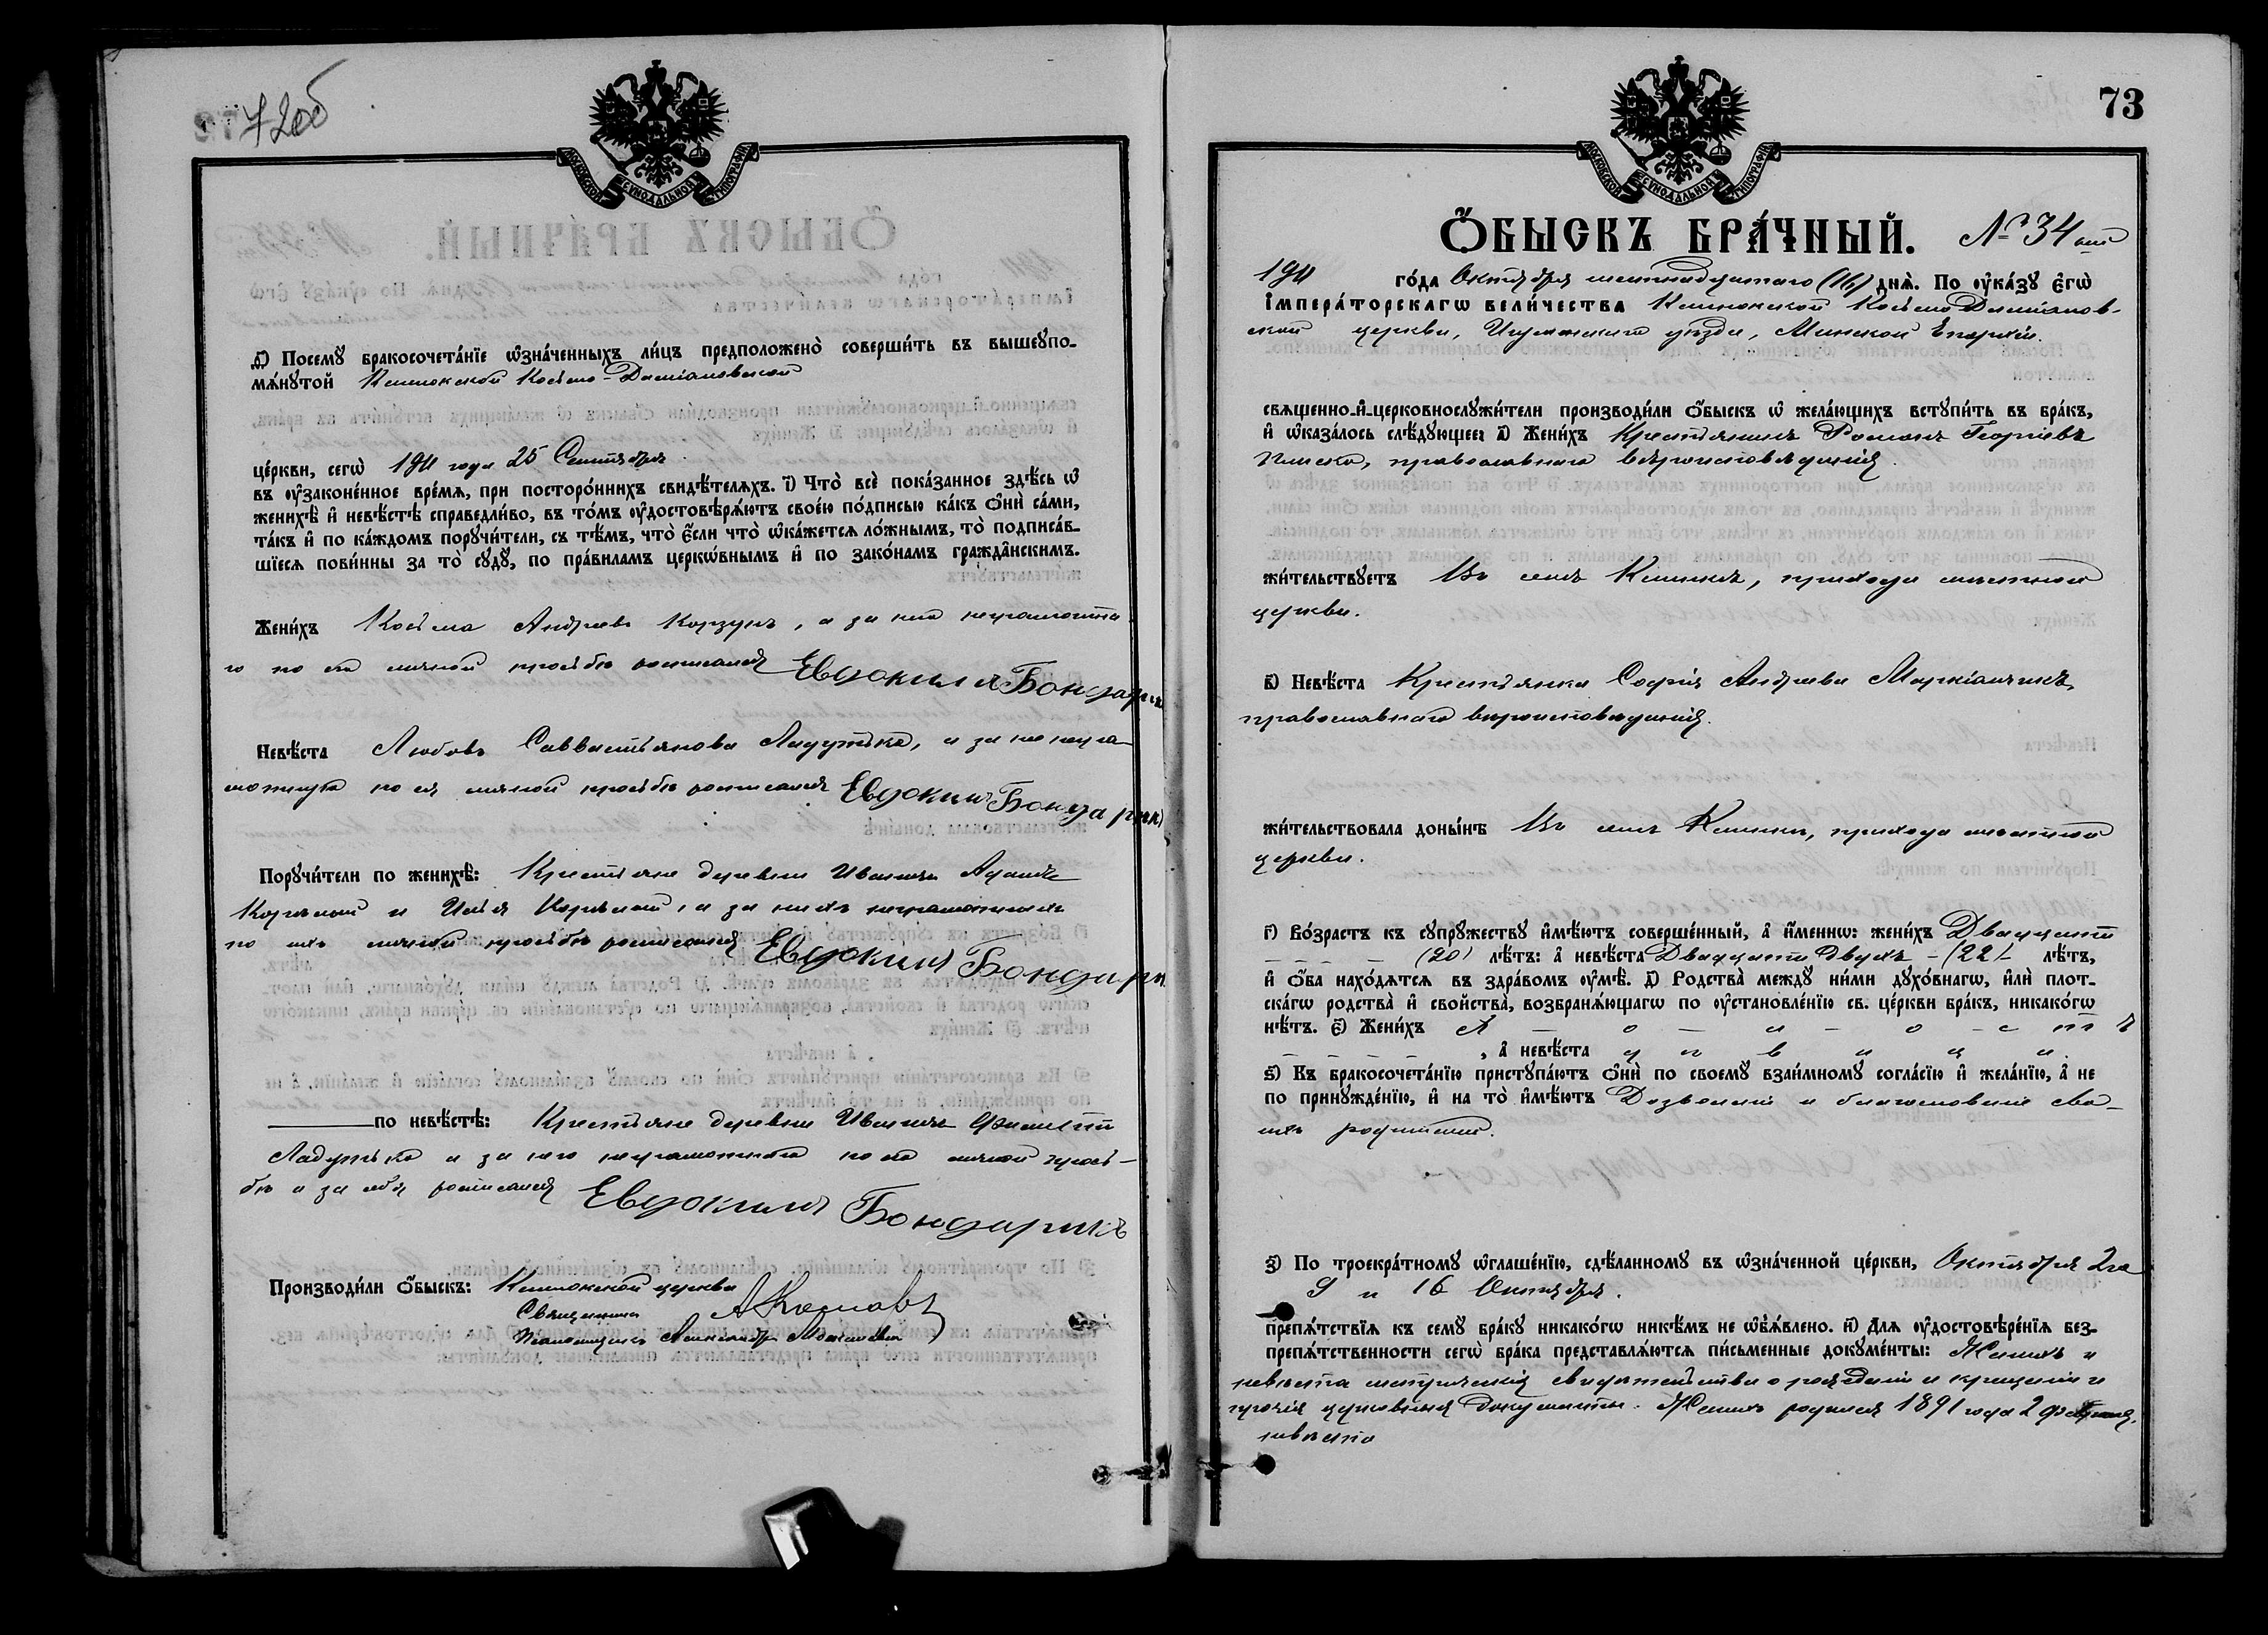 72об
МОСКОВСКОЙ СѴНОДАЛЬНОЙ ТИПОГРАФІИ
д҃і) Посемꙋ̀ бракосочета́нїе ѡ҆зна́ченныхъ ли́цъ предположено̀ соверши́ть въ вышеꙋпо-
мѧ́нꙋтой Клинокской Косьмо-Даміановской
це́ркви, сегѡ̀ 1911 года 25 Сентября
въ ᲂу҆законе́нное вре́мѧ, при посторо́ннихъ свидѣ́телѧхъ. і҃) Что̀ всѐ пока́занное здѣ́сь ѡ҆
женихѣ̀ и҆ невѣ́стѣ справедли́во, въ то́мъ ᲂу҆достовѣрѧ́ютъ свое́ю по́дписью ка́къ ѻ҆нѝ са́ми,
та́къ и҆ по ка́ждомъ порꙋчи́тели, съ тѣ́мъ, что̀ є҆́сли что̀ ѡ҆ка́жетсѧ ло́жнымъ, то̀ подписа́в-
шїесѧ пови́нны за то̀ сꙋдꙋ̀, по пра́виламъ церкѡ́внымъ и҆ по зако́намъ гражда̂нскимъ.
Жени́хъ Косьма Андреевъ Корзунъ, а за него неграмотна-
го по его личной просьбѣ росписался Евдокимъ Бондарик
Невѣ́ста Любовь Саввастьянова Ладутько, а за нее негра-
мотную по ея личной просьбѣ росписался Евдоким Бондарик
Порꙋчи́тели по женихѣ̀: Крестьяне деревни Иваничи Адамъ
и Илья , а за нихъ неграмотныхъ
по ихъ личной просьбѣ росписался Евдоким Бондарик
по невѣ́стѣ: Крестьяне деревни Иваничи
Ладутько а за него неграмотнаго по его личной прось-
бѣ и за себя росписался Евдоким Бондарикъ
Производи́ли ѻ҆́быскъ: Клинокской церкви
Священникъ
Псаломщикъ Александръ
73
МОСКОВСКОЙ СѴНОДАЛЬНОЙ ТИПОГРАФІИ
Ѻ҆́БЫСКЪ БРА́ЧНЫЙ. № 34ый
1911 го́да Октября шестнадцатаго (16) днѧ̀. По ᲂу҆ка́зꙋ є҆гѡ̀
і҆мпера́торскагѡ вели́чества Клинокской Косьмо Даміанов-
ской церкви, Игуменскаго уѣзда, Минской Епархіи.
свѧщенно-и҆-церковнослꙋжи́тели производи́ли ѻ҆́быскъ ѡ҆ жела́ющихъ встꙋпи́ть въ бра́къ,
и҆ ѡ҆каза́лось слѣ́дꙋющее: а҃) Жени́хъ Крестьянинъ Романъ Георгіевъ
православнаго вѣроисповѣданія.
жи́тельствꙋетъ Въ селѣ Клинкѣ, прихода мѣстной
церкви.
в҃) Невѣ́ста Крестьянка Софія Андреева
православнаго вѣроисповѣданія.
жи́тельствовала доны́нѣ Въ селѣ Клинкѣ, прихода мѣстной
церкви.
г҃) Во́зрастъ къ сꙋпрꙋ́жествꙋ и҆мѣ́ютъ соверше́нный, а҆ и҆́менно: жени́хъ Двадцати
(20) лѣ́тъ: а҆ невѣ́ста Двадцати двухъ - (22) - лѣ́тъ,
и҆ ѻ҆́ба нахо́дѧтсѧ въ здра́вомъ ᲂу҆мѣ̀. д҃) Родства̀ междꙋ̀ ни́ми дꙋхо́внагѡ, и҆лѝ плот-
ска́гѡ родства̀ и҆ сво́йства̀, возбранѧ́ющагѡ по ᲂу҆становле́нїю св. це́ркви бра́къ, никако́гѡ
нѣ́тъ. є҃) Жени́хъ х - о - л - о - с - т ъ
, а҆ невѣ́ста д ѣ в и ц а.
ѕ҃) Къ бракосочета́нїю пристꙋпа́ютъ ѻ҆нѝ по своемꙋ̀ взаи́мномꙋ согла́сїю и҆ жела́нїю, а҆ не
по принꙋжде́нїю, и҆ на то̀ и҆мѣ́ютъ Дозволеніе и благословеніе сво-
ихъ родителей.
з҃) По троекра́тномꙋ ѡ҆глаше́нїю, сдѣ́ланномꙋ въ ѡ҆зна́ченной це́ркви, Октября 2го
9 и 16 Октября.
препѧ́тствїѧ къ семꙋ̀ бра́кꙋ никако́гѡ никѣ́мъ не ѡ҆б̾ѧ́влено. и҃) Длѧ̀ ᲂу҆достовѣре́нїѧ без-
препѧ́тственности сегѡ̀ бра́ка представлѧ́ютсѧ пи́сьменные докꙋме́нты: Женихъ и
невѣста метрическія свидѣтельства о рожденіи и крещеніи и
прочія церковныя документы. Женихъ родился 1891 года 2 февраля,
невѣста